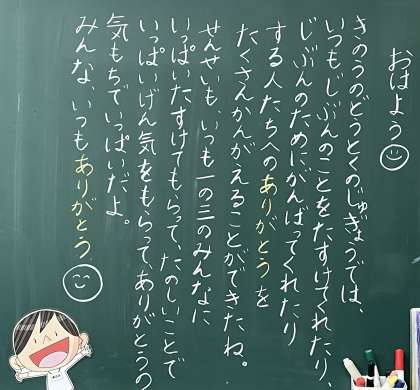 おはよう
きのうのどうとくのじゅぎょうでは、
いつもじぶんのことをたすけてくれたり、
じぶんのためにがんばってくれたり
する人たちへのありがとうを
たくさんかんがえることができたね。
せんせいも、いつも一の三のみんなに
いっぱいたすけてもらって、たのしいことで
いっぱいげん気をもらってありがとうの
気もちでいっぱいだよ。
みんな、いつもありがとう